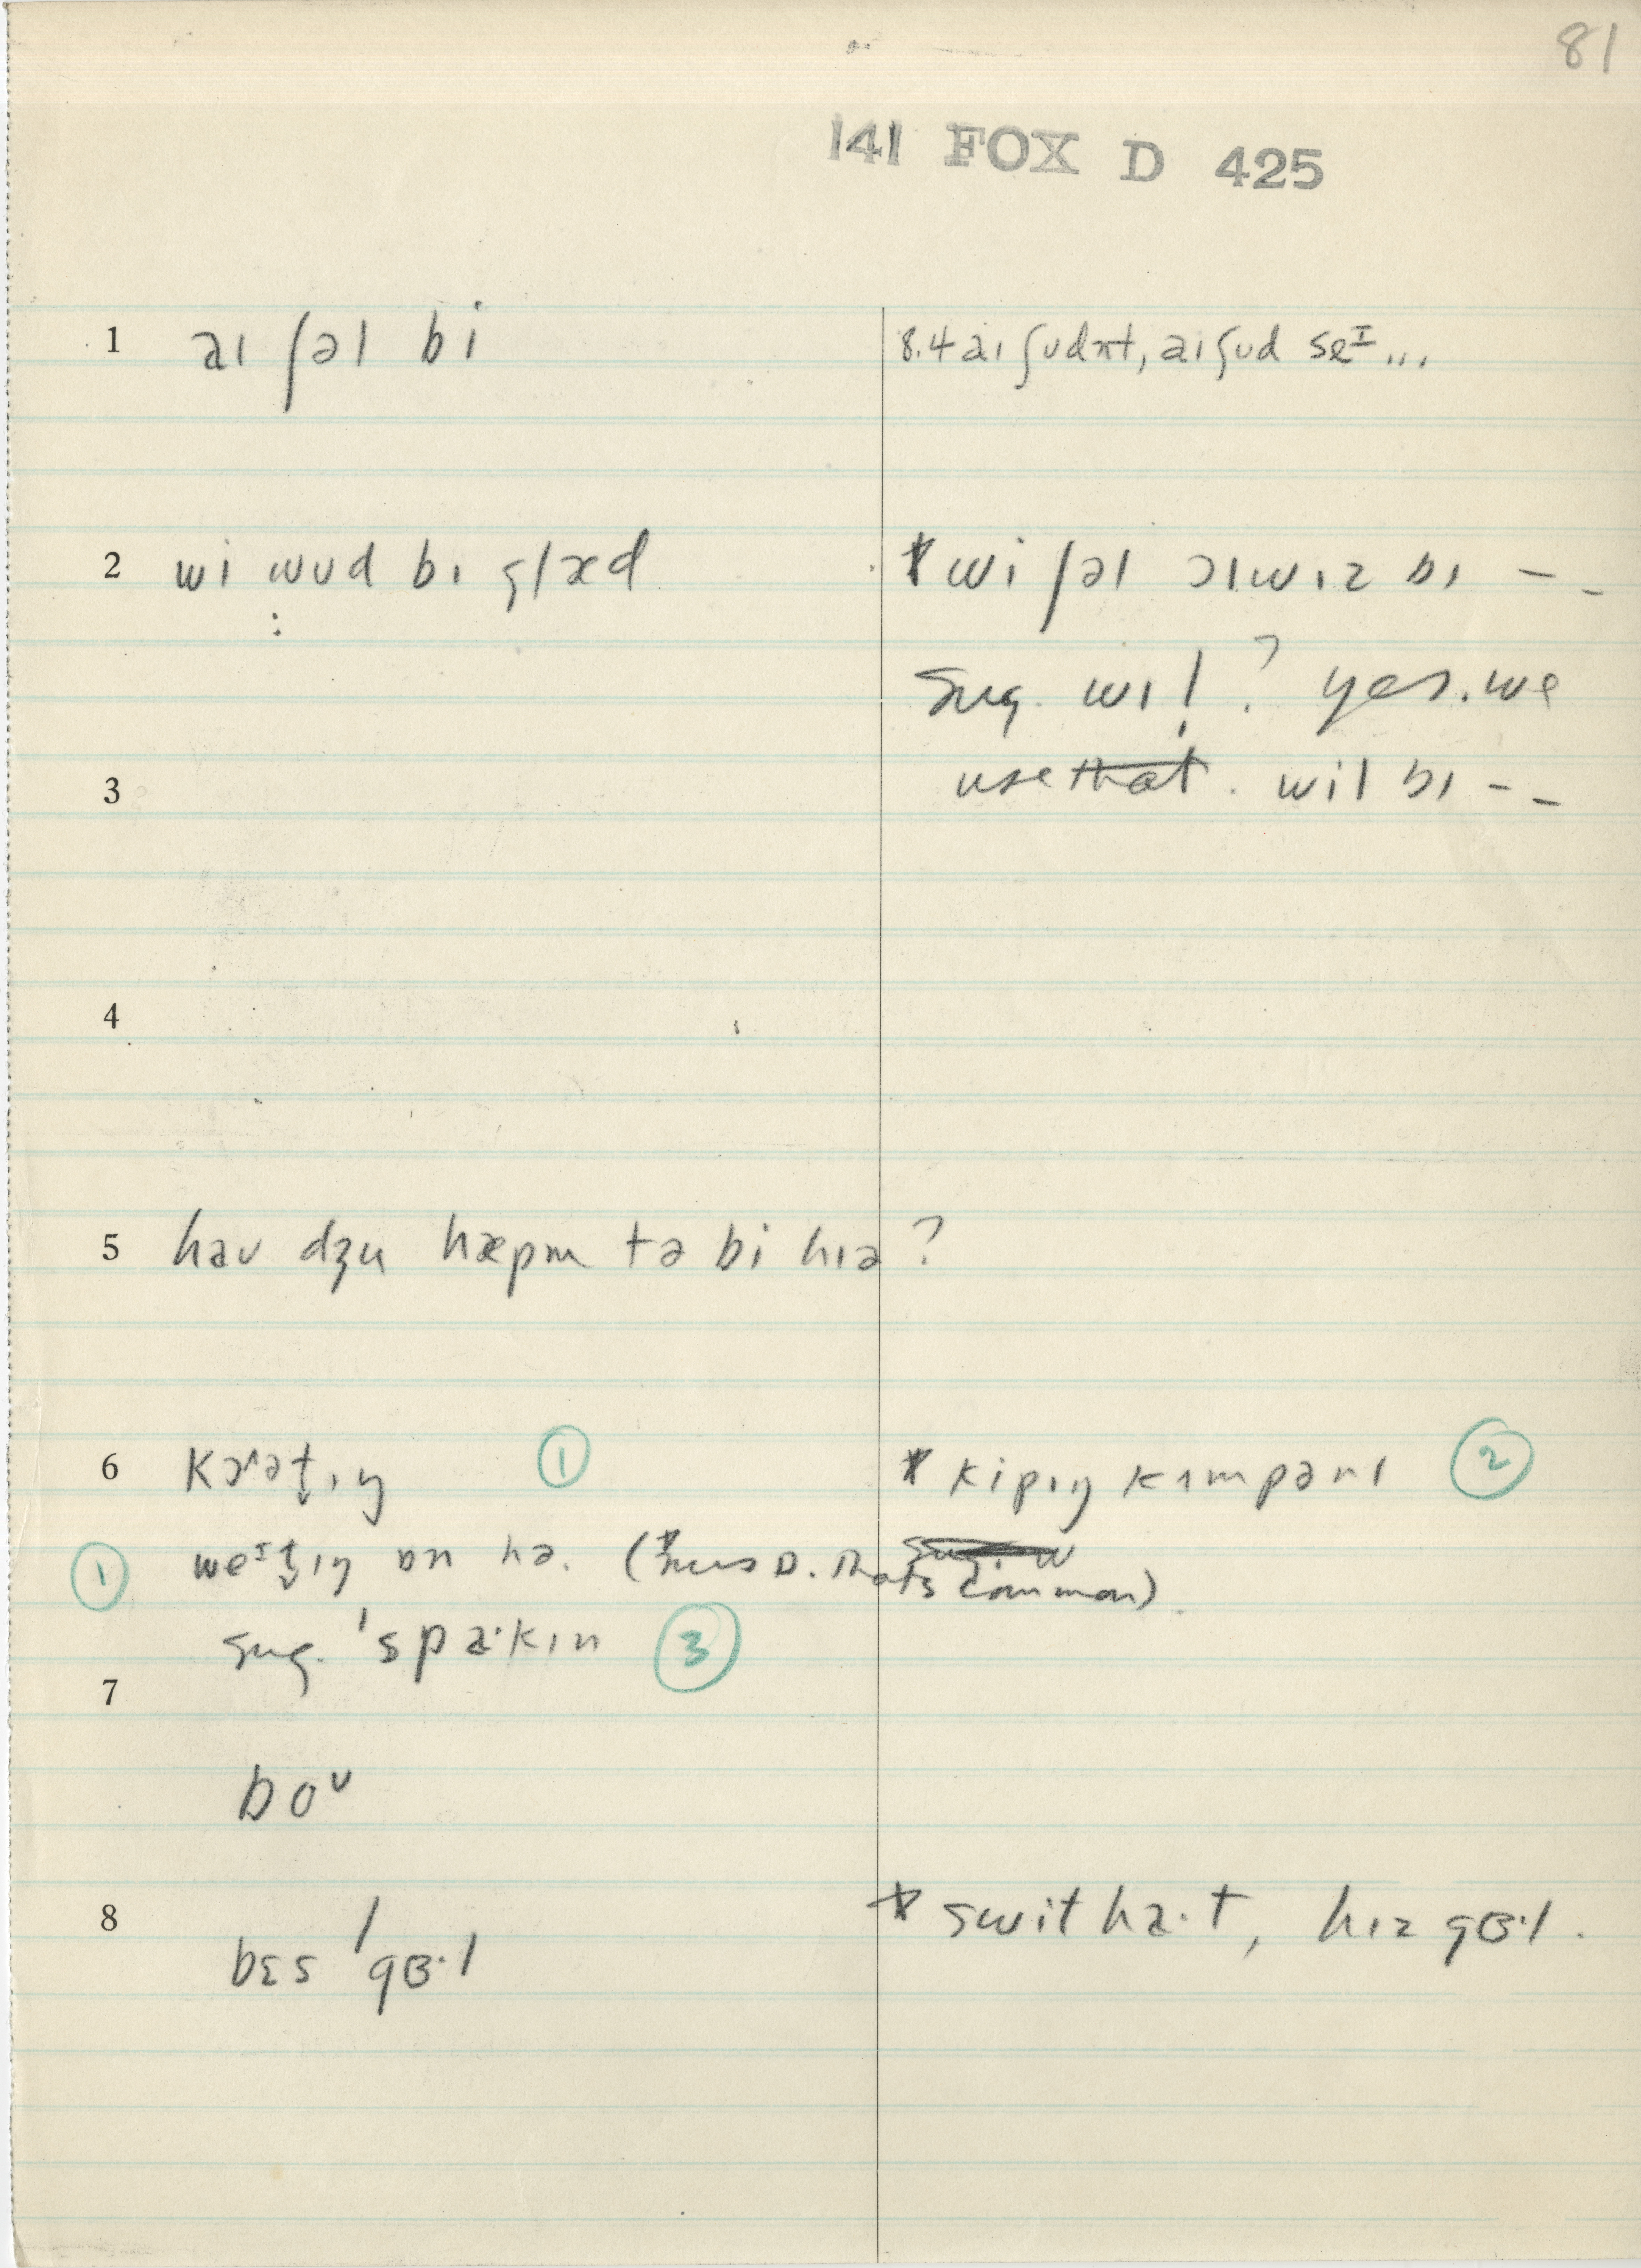 81
141 FOX D 425
1 aɪ ʃəl bi
8.4 aɪ ʃʊdn̩t, aɪ ʃʊd seᴵ...
2 wi wʊd bɪ glæd
* wi ʃəl ɔlwɪz bɪ – –
sug. wɪl? yes. we
use that. wil bɪ – –
3
4
5 haʊ dʒu hæpm tə bi hɪə?
6 kɔətɪŋ ①
* kipɪŋ kʌmpənɪ ②
① weᴵtɪŋ ɒn hə. (*mus D. That's common).
sug. 'spa·kɪn ③
7
boᶷ
8 bɛs 'gɜ·l
* swit ha·t, hɪz gɜ·l.